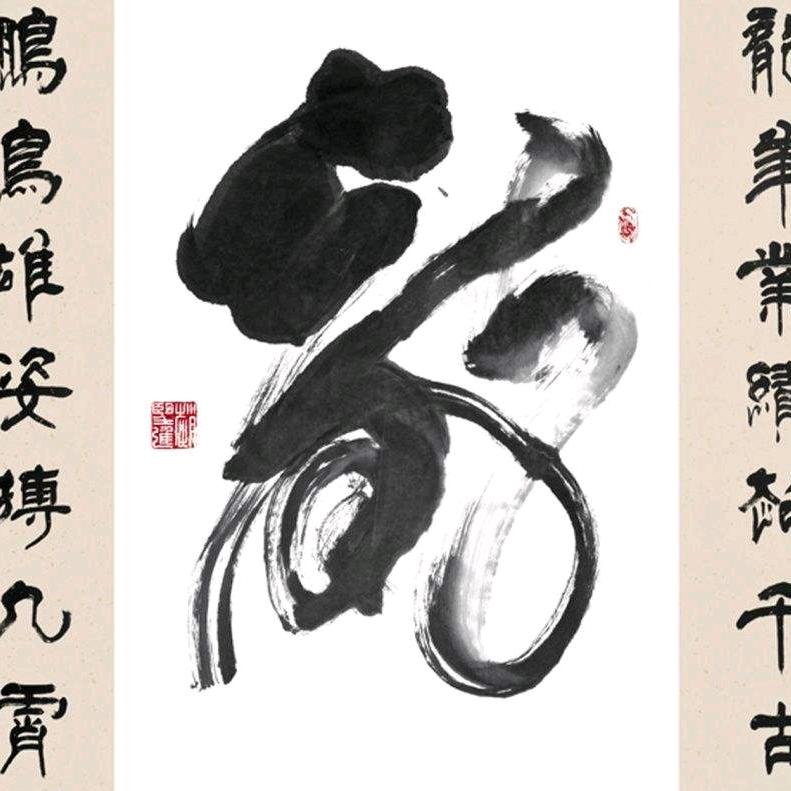 龍年業績超千古
鵬鳥雄姿搏九霄